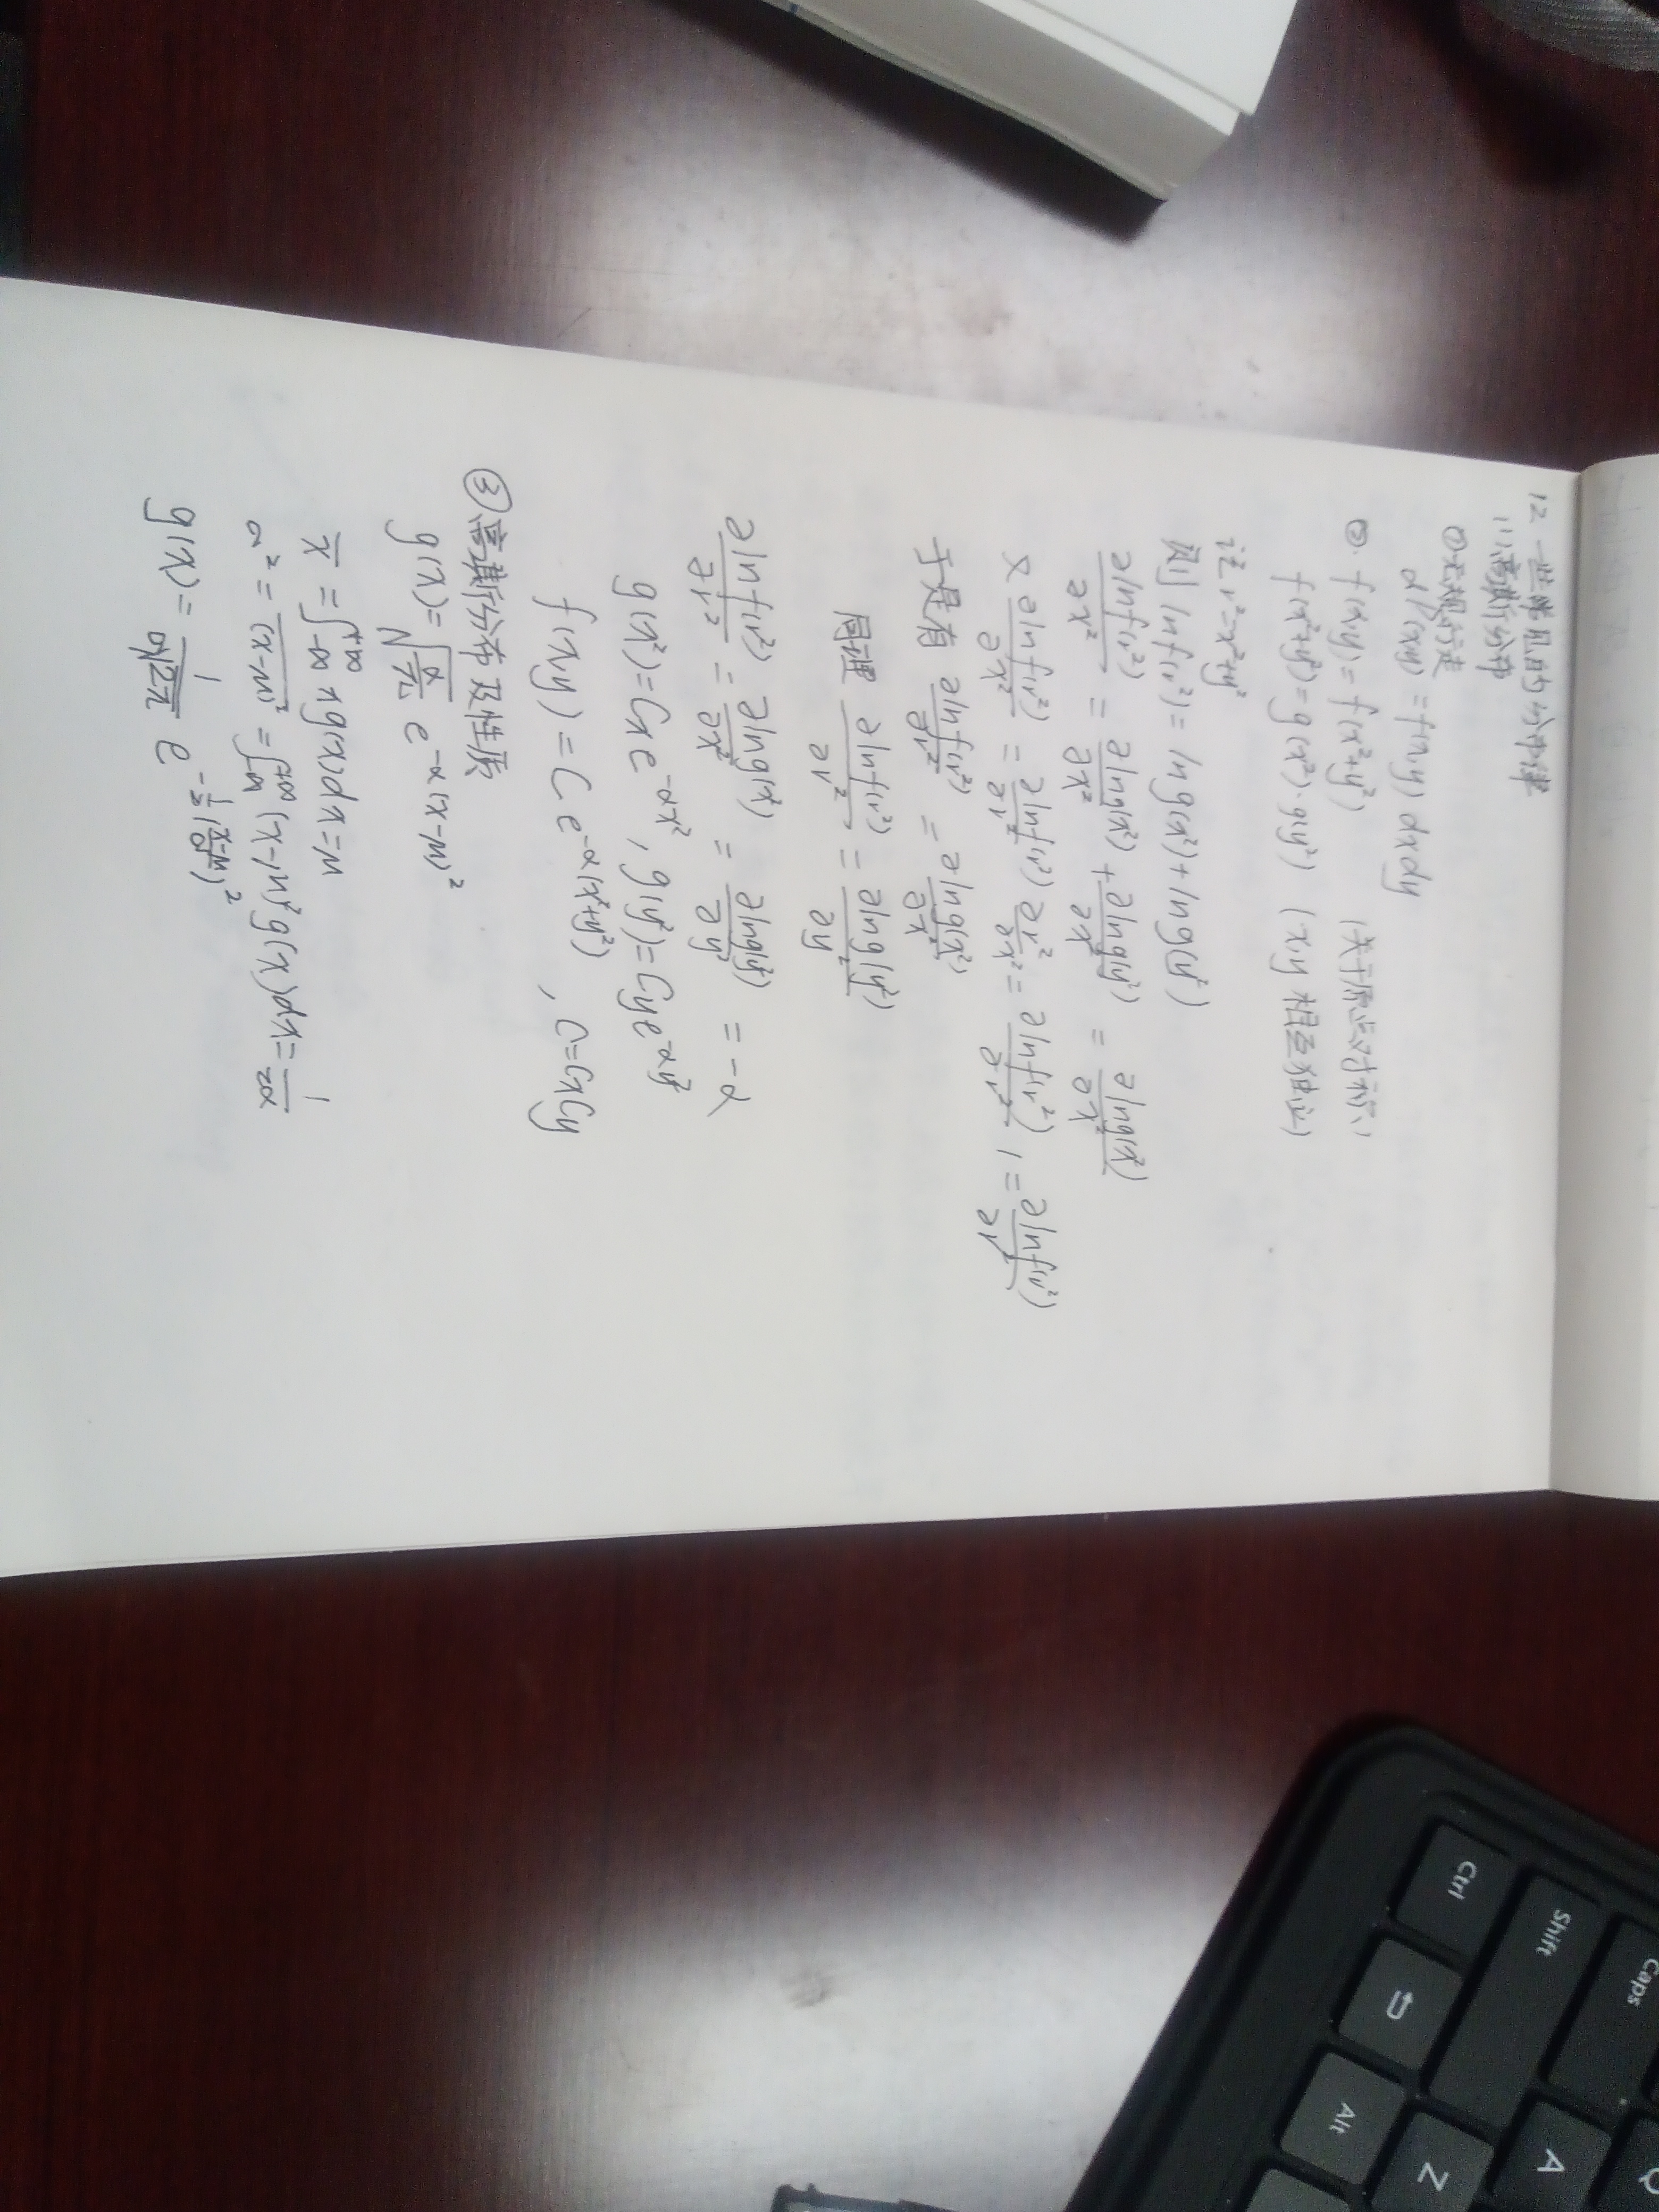 12 一些常见的分布律
(1)高斯分布
①无规行走
dP(x,y) = f(x,y) dxdy
②. f(x,y) = f(x²+y²) (关于原点对称)
f(x²+y²) = g(x²)·g(y²) (x,y 相互独立)
记 r²=x²+y²
则 ln f(r²) = ln g(x²) + ln g(y²)
∂lnf(r²)/∂x² = ∂lng(x²)/∂x² + ∂lng(y²)/∂x² = ∂lng(x²)/∂x²
× ∂lnf(r²)/∂x² = ∂lnf(r²)/∂r² ∂r²/∂x² = ∂lnf(r²)/∂r² 1 = ∂lnf(r²)/∂r²
于是有 ∂lnf(r²)/∂r² = ∂lng(x²)/∂x²
同理 ∂lnf(r²)/∂r² = ∂lng(y²)/∂y²
∂lnf(r²)/∂r² = ∂lng(x²)/∂x² = ∂lng(y²)/∂y² = -α
g(x²) = Cx e^-αx², g(y²) = Cy e^-αy²
f(x,y) = C e^-α(x²+y²), C=CxCy
③高斯分布及性质
g(x) = √(α/π) e^-α(x-μ)²
x̄ = ∫_-∞^+∞ x g(x)dx = μ
σ² = (x-μ)² = ∫_-∞^+∞ (x-μ)² g(x)dx = 1/2α
g(x) = 1/σ√2π e^-½(x-μ/σ)²
Ctrl
Shift
Caps
Alt
Z
A
Q